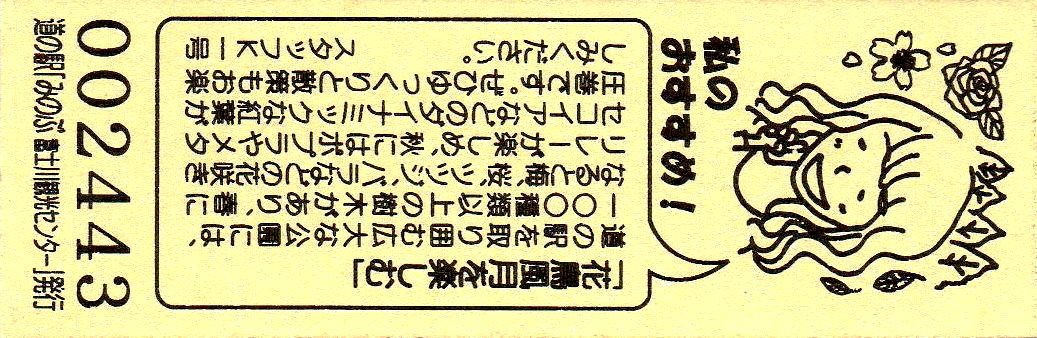 私の
おすすめ!
「花鳥風月を楽しむ」
道の駅を取り囲む広大な公園には、
一〇〇種類以上の樹木があり、春に
なると梅、桜、ツツジ、バラなどの花咲き
リレーが楽しめ、秋にはポプラやメタ
セコイアなどのダイナミックな紅葉が
圧巻です。ぜひゆっくりと散策もお楽
しみください。
スタッフK一号
002443
道の駅「みのぶ 富士川観光センター」発行